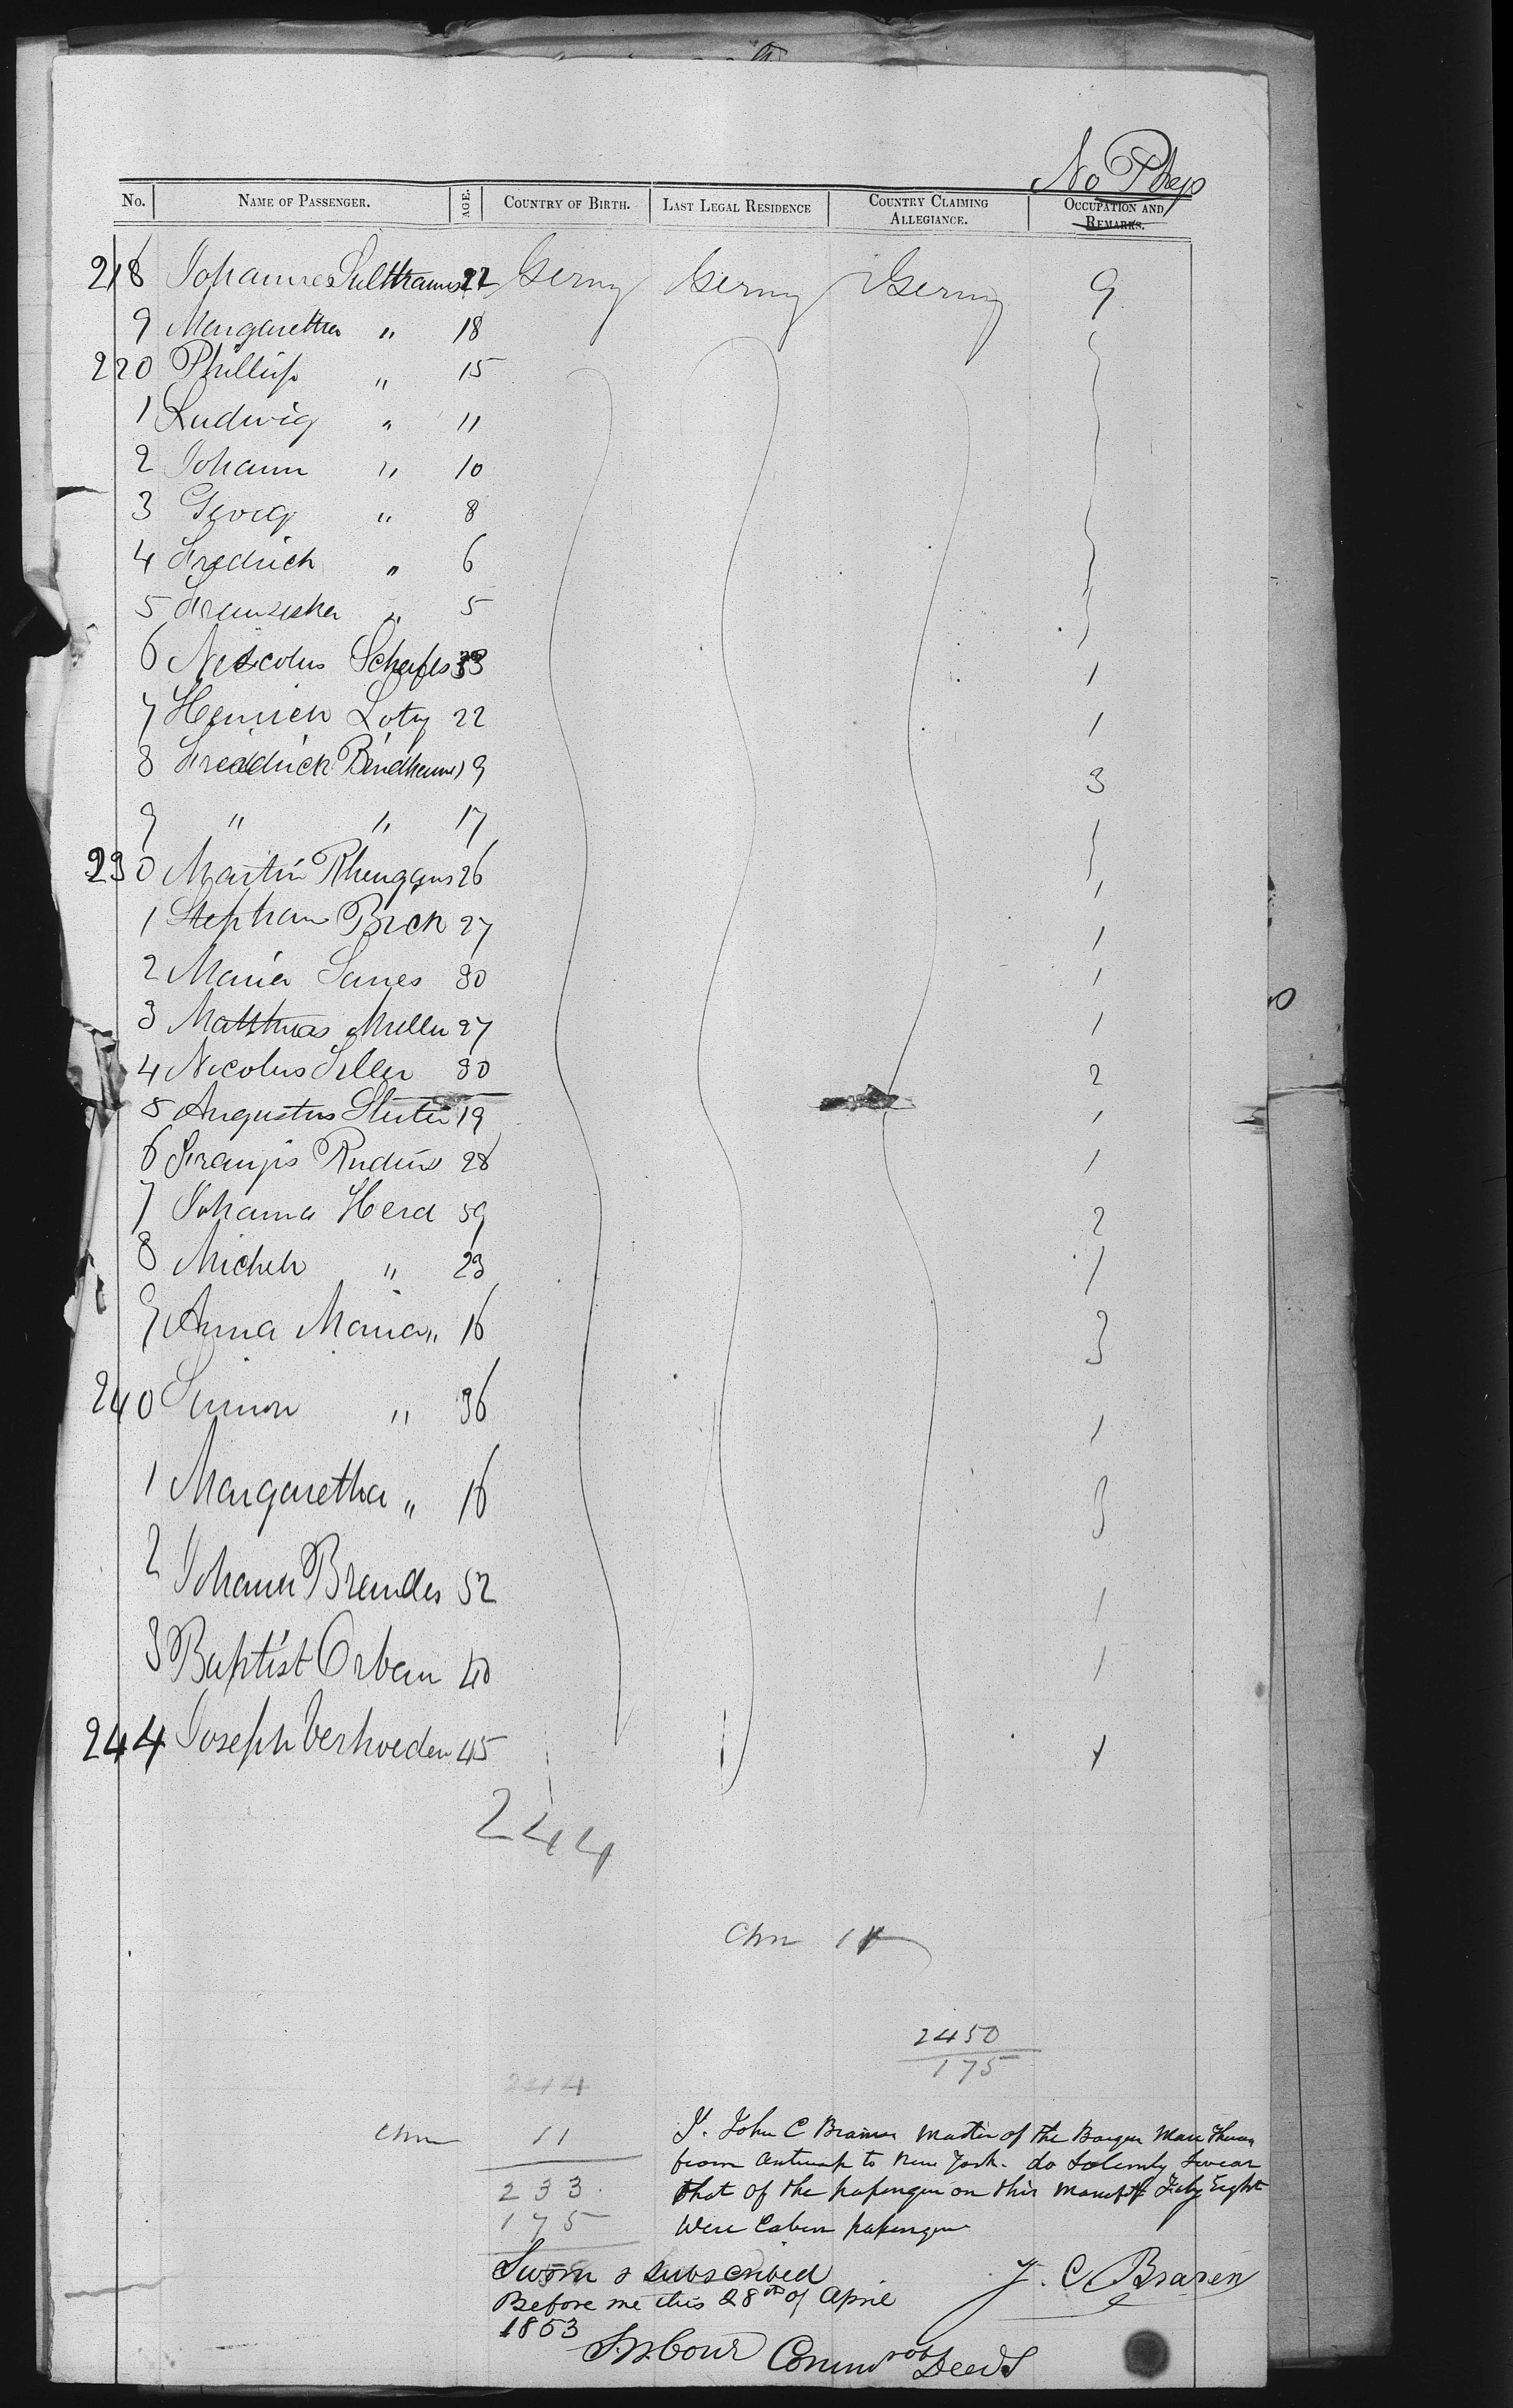 No
No. NAME OF PASSENGER. AGE. COUNTRY OF BIRTH. LAST LEGAL RESIDENCE COUNTRY CLAIMING ALLEGIANCE. OCCUPATION AND REMARKS.
218 Johannes 22 Germy Germy Germy 9
9 Margaretha " 18
220 Phillip " 15
1 Ludwig " 11
2 Johann " 10
3 Georg " 8
4 Fredrich " 6
5 Franziska " 5
6 Nicolus 1
7 Heinrich Loty 22 1
8 Freddrick Bindheim 19 3
9 " " 17
230 Martin Rhengans 26 1
1 Stephan Bick 27 1
2 Maria 30 1
3 Matthias Muller 27 1
4 Nicolus 30 2
5 Augustus 19 1
6 28 1
7 Johanna Herd 59 2
8 Micheh " 23 1
9 Anna Maria " 16 3
240 Simon " 36 1
1 Margaretha " 16 3
2 Johann Brandes 52 1
3 Baptist Orban 40 1
244 Joseph Verhoeden 45 1
244
Chn 11
2450
175
244
Chn 11
233
175
I. John C Braren Master of the Barque
from Antwerp to New York. do Solemnly Swear
that of the passengers on this Manifest Fifty Eight
Were Cabin passengers
J. C Braren
Sworn & subscribed
Before me this 28th of April
1853
Deeds